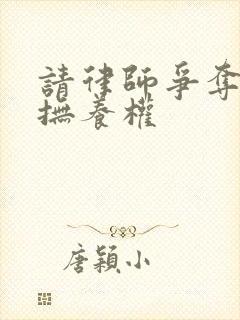 請律師爭奪
撫養權
唐穎小